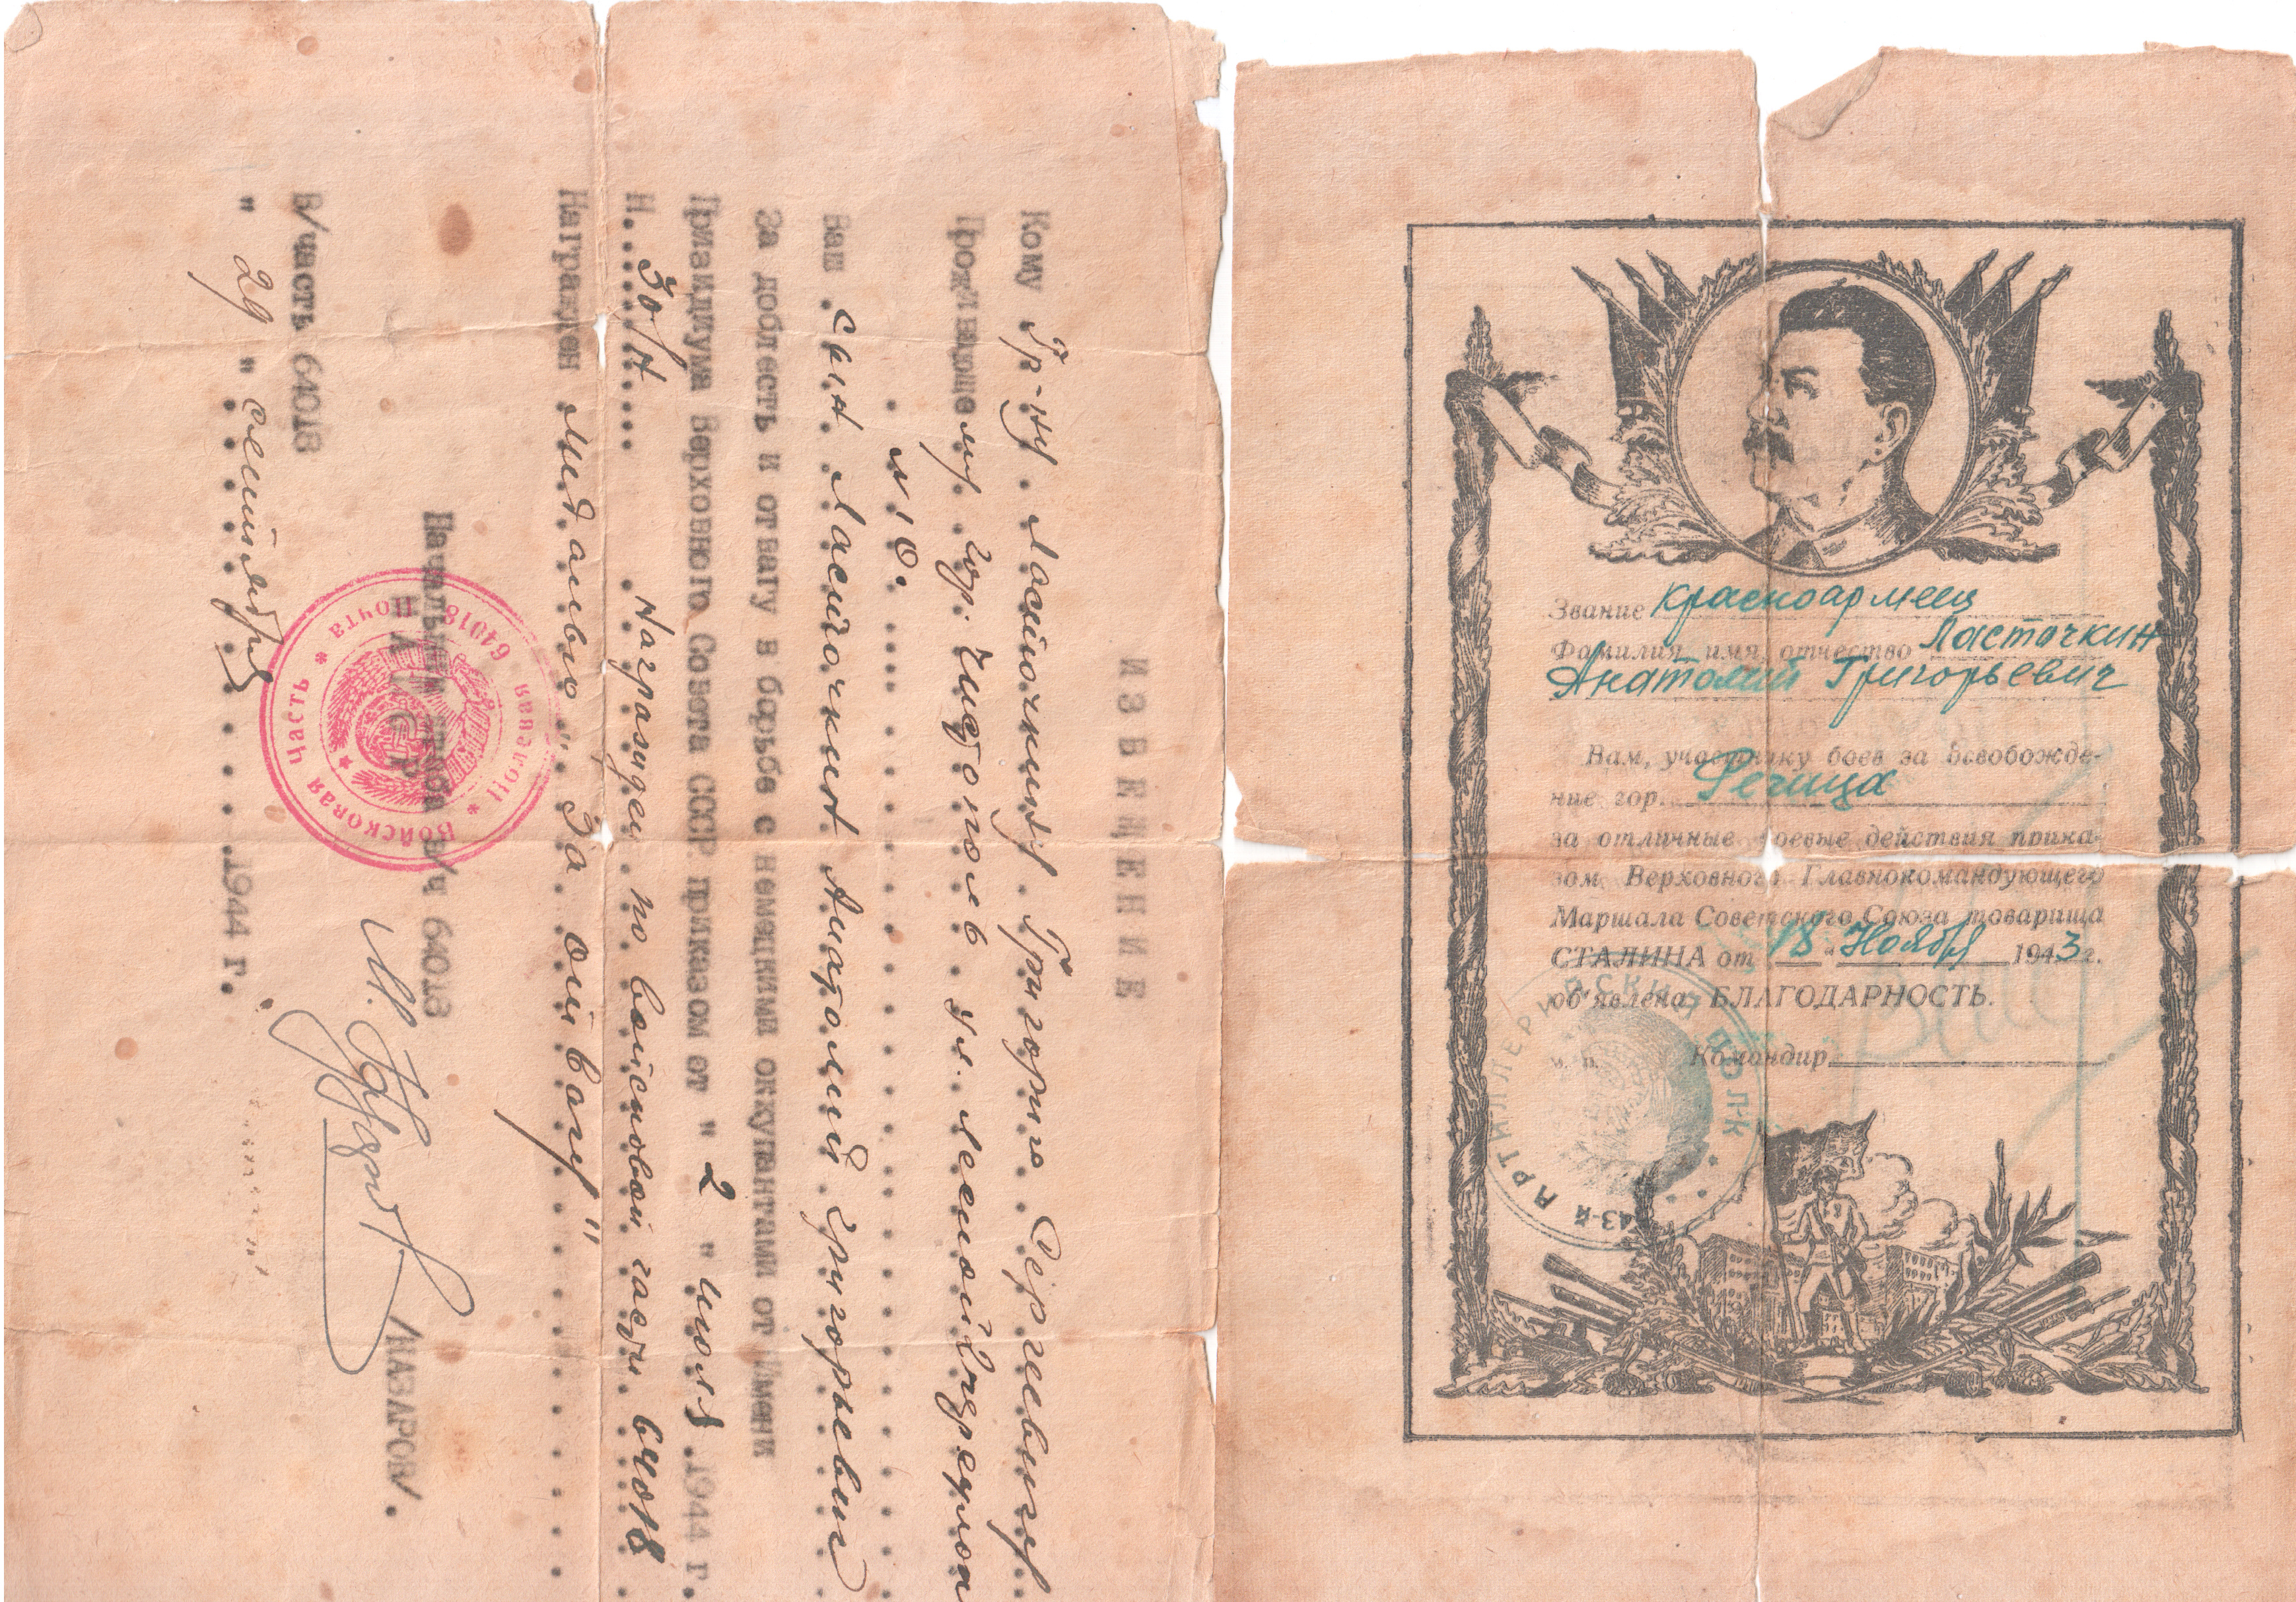 И З В Е Щ Е Н И Е
Кому Гр-ну Ласточкину Григорию Сергеевичу
Проживающему гор. Чистополь ул. Лесной
№ 10.
Ваш сын Ласточкин Анатолий Григорьевич
За доблесть и отвагу в борьбе с немецкими оккупантами от имени
Призидиума Верховного Совета СССР приказом от " 2 " июля 1944 г.
Н. 30/н Награжден по войсковой части 64018
Награжден медалью "За отвагу"
Начальник штаба в/ч 64018
/НАЗАРОВ/.
В/часть 64018
" 29 " сентября 1944 г.
* Полевая почта * Войсковая часть
64018
Звание Красноармеец
Фамилия, имя, отчество Ласточкин
Анатолий Григорьевич
Вам, участнику боев за освобожде-
ние гор. Речица
за отличные боевые действия прика-
зом Верховного Главнокомандующего
Маршала Советского Союза товарища
СТАЛИНА от 18 " Ноября 1943 г.
об'явлена БЛАГОДАРНОСТЬ.
м. п. Командир
43-й АРТИЛЛЕРИЙСКИЙ ПОЛК